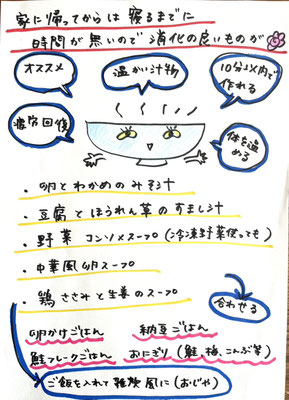 家に帰ってからは寝るまでに
時間が無いので消化の良いものが
オススメ
温かい汁物
10分以内で
作れる
疲労回復
体を温
める
・卵とわかめのみそ汁
・豆腐とほうれん草のすまし汁
・野菜コンソメスープ(冷凍野菜使っても)
・中華風卵スープ
・鶏ささみと生姜のスープ
合わせる
卵かけごはん 納豆ごはん
鮭フレークごはん おにぎり(鮭、梅、こんぶ等)
ご飯を入れて雑炊風に(おじや)